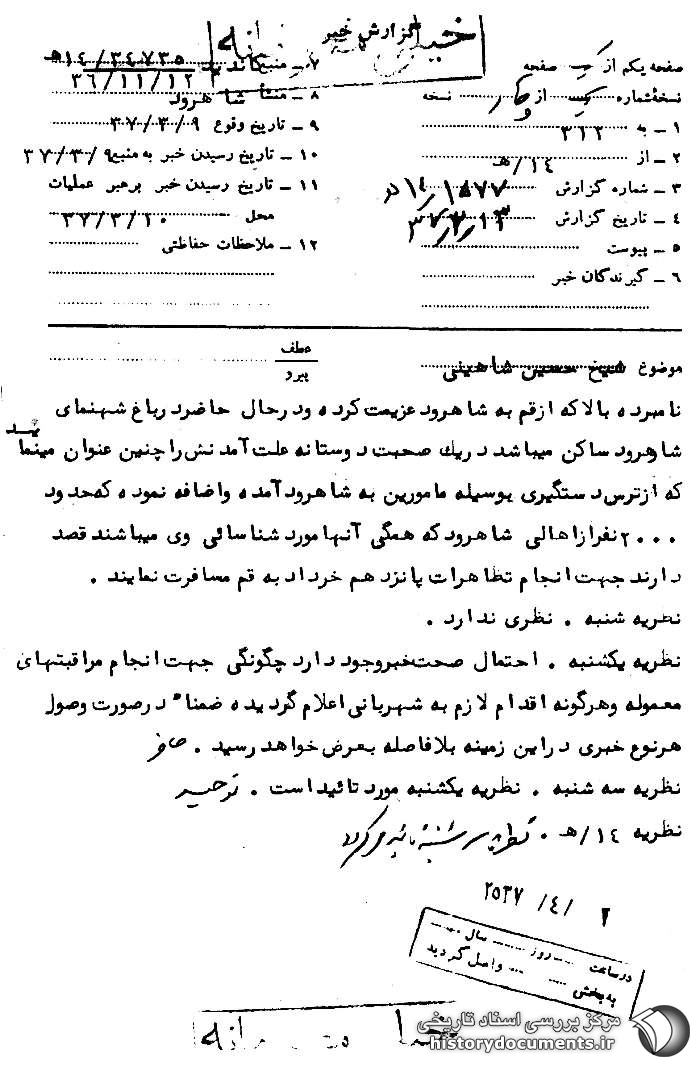 گزارش خبر
صفحه یکم از یک صفحه
نسخه شماره یک از چهار نسخه
۱ ـ به ۳۱۲
۲ ـ از ۱۴/ه‍
۳ ـ شماره گزارش ۱۴/۱۵۷۷ ه‍
۴ ـ تاریخ گزارش ۳۷/۳/۱۳
۵ ـ پیوست
۶ ـ گیرندگان خبر
۷ ـ منبع ۱۴/۳۴۷۳۵ه‍
۳۶/۱۱/۱۲
۸ ـ منشأ شاهرود
۹ ـ تاریخ وقوع ۳۷/۳/۹
۱۰ ـ تاریخ رسیدن خبر به منبع ۳۷/۳/۹
۱۱ ـ تاریخ رسیدن خبر برهبر عملیات
محل ۳۷/۳/۱۰
۱۲ ـ ملاحظات حفاظتی
موضوع شیخ حسین شاهینی
عطف
پیرو
نامبرده بالا که ازقم به شاهرود عزیمت کرده ودرحال حاضرد رباغ شهنمای
شاهرود ساکن میباشد دریك صحبت دوستانه علت آمدنش راچنین عنوان مینماید
که ازترس دستگیری بوسیله مامورین به شاهرودآمده واضافه نموده که حدود
۲۰۰۰نفرازاهالی شاهرود که همگی آنها مورد شناسائی وی میباشند قصد
دارند جهت انجام تظاهرات پانزدهم خرداد به قم مسافرت نمایند .
نظریه شنبه . نظری ندارد .
نظریه یکشنبه . احتمال صحت خبروجود دارد چگونگی جهت انجام مراقبتهای
معموله وهرگونه اقدام لازم به شهربانی اعلام گردیده ضمنا" درصورت وصول
هرنوع خبری دراین زمینه بلافاصله بعرض خواهد رسید .
نظریه سه شنبه . نظریه یکشنبه مورد تائید است .
نظریه ۱۴/ه‍ . نظریه سه شنبه تائید میگردد
۲۵۳۷/۴/۲
درساعت روز سال
به بخش واصل گردید
مرکز بررسی اسناد تاریخی
historydocuments.ir